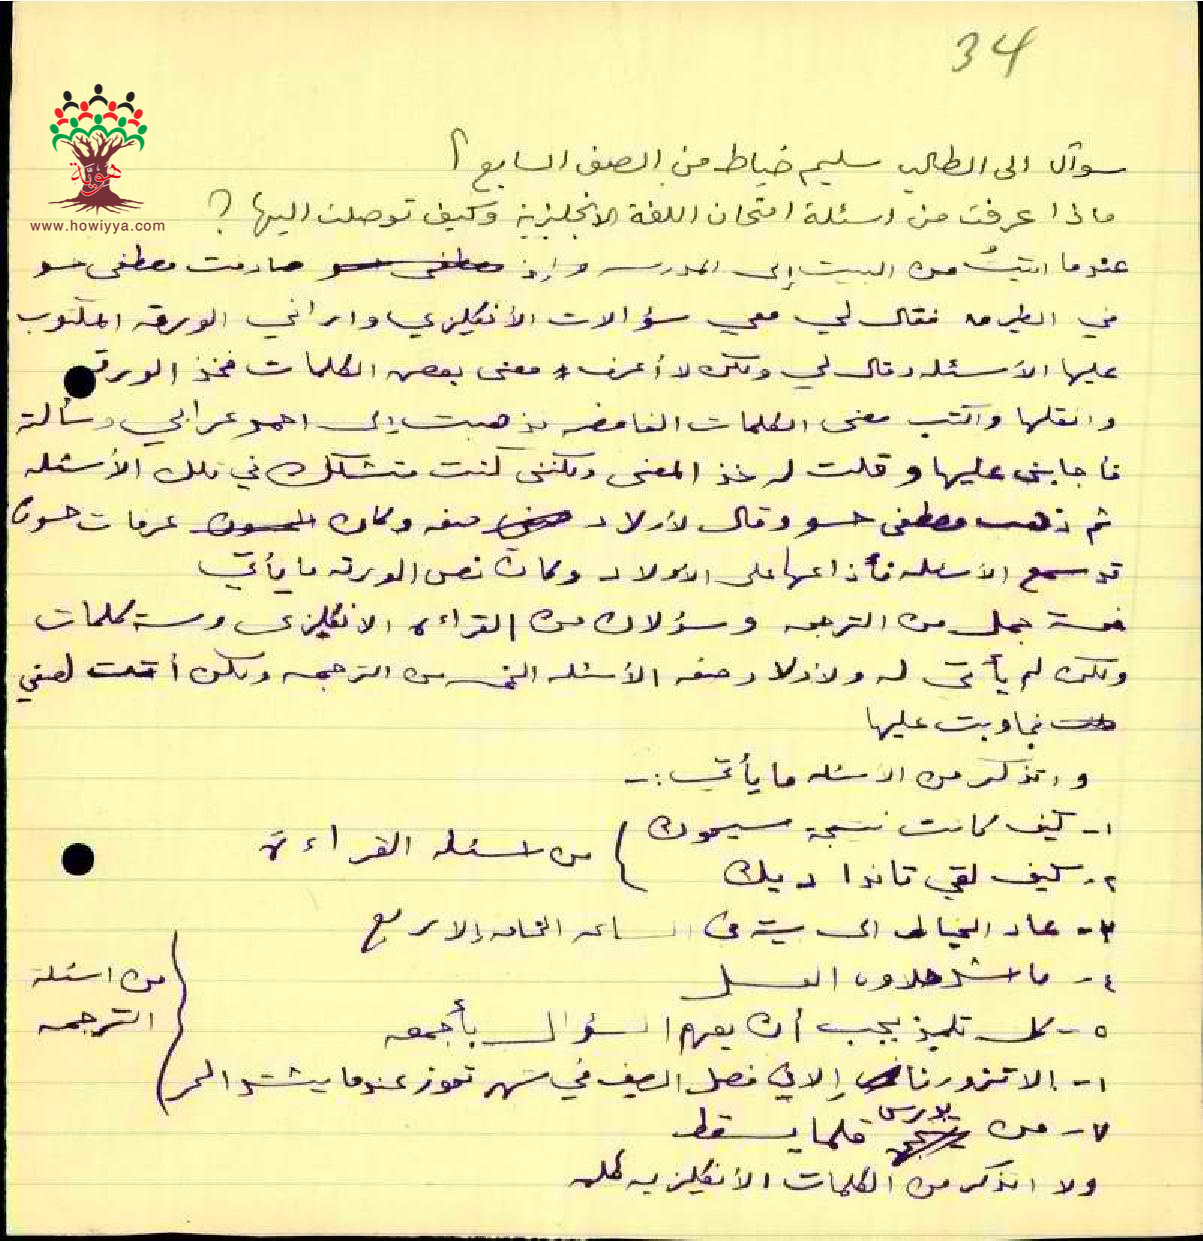 34
هوية
www.howiyya.com
سوآل الى الطالب سليم خياط من الصف السابع ؟
ماذا عرفت من اسئلة امتحان اللغة الانجليزية وكيف توصلت اليها ؟
عندما اتيتُ من البيت إلى المدرسه وإذ صادفت مصطفى حسو
في الطريق فقال لي معي سؤالات الأنكليزي واراني الورقه المكتوب
عليها الأسئله وقال لي ولكن لا أعرف معنى بعض الكلمات فخذ الورقه
وانقلها واكتب معنى الكلمات الغامضه فذهبت إلى احمد عرابي وسألته
فأجابني عليها وقلت له خذ المعنى ولكنني كنت متشكك في تلك الأسئله
ثم ذهب مصطفى حسو وقال لأولاد صفه وكان عرفات حسون
قد سمع الأسئله فأذاعها على الأولاد وكان نص الورقه ما يأتي
خمسة جمل من الترجمه وسؤلان من القراءه الانكليزي وستة كلمات
ولكن لم يأتي له ولأولاد صفه الأسئله التي من الترجمه ولكن أتت لصفي
فجاوبت عليها
واتذكر من الأسئله ما يأتي :-
١- كيف كانت نتيجة سيمون
٢- كيف لقي تاندا ديك
من اسئله القراءة
٣- عاد الخياط الى بيته في الساعه الثامنه إلا ربع
٤- ما اشد حلاوه العسل
٥- كل تلميذ يجب أن يفهم السؤال بأجمعه
٦- الا تزورنا إلا في فصل الصيف في شهر تموز عندما يشتد الحر
من اسئلة
الترجمه
٧- من يدرس قلما يسقط
ولا اتذكر من الكلمات الأنكليزيه كلمه